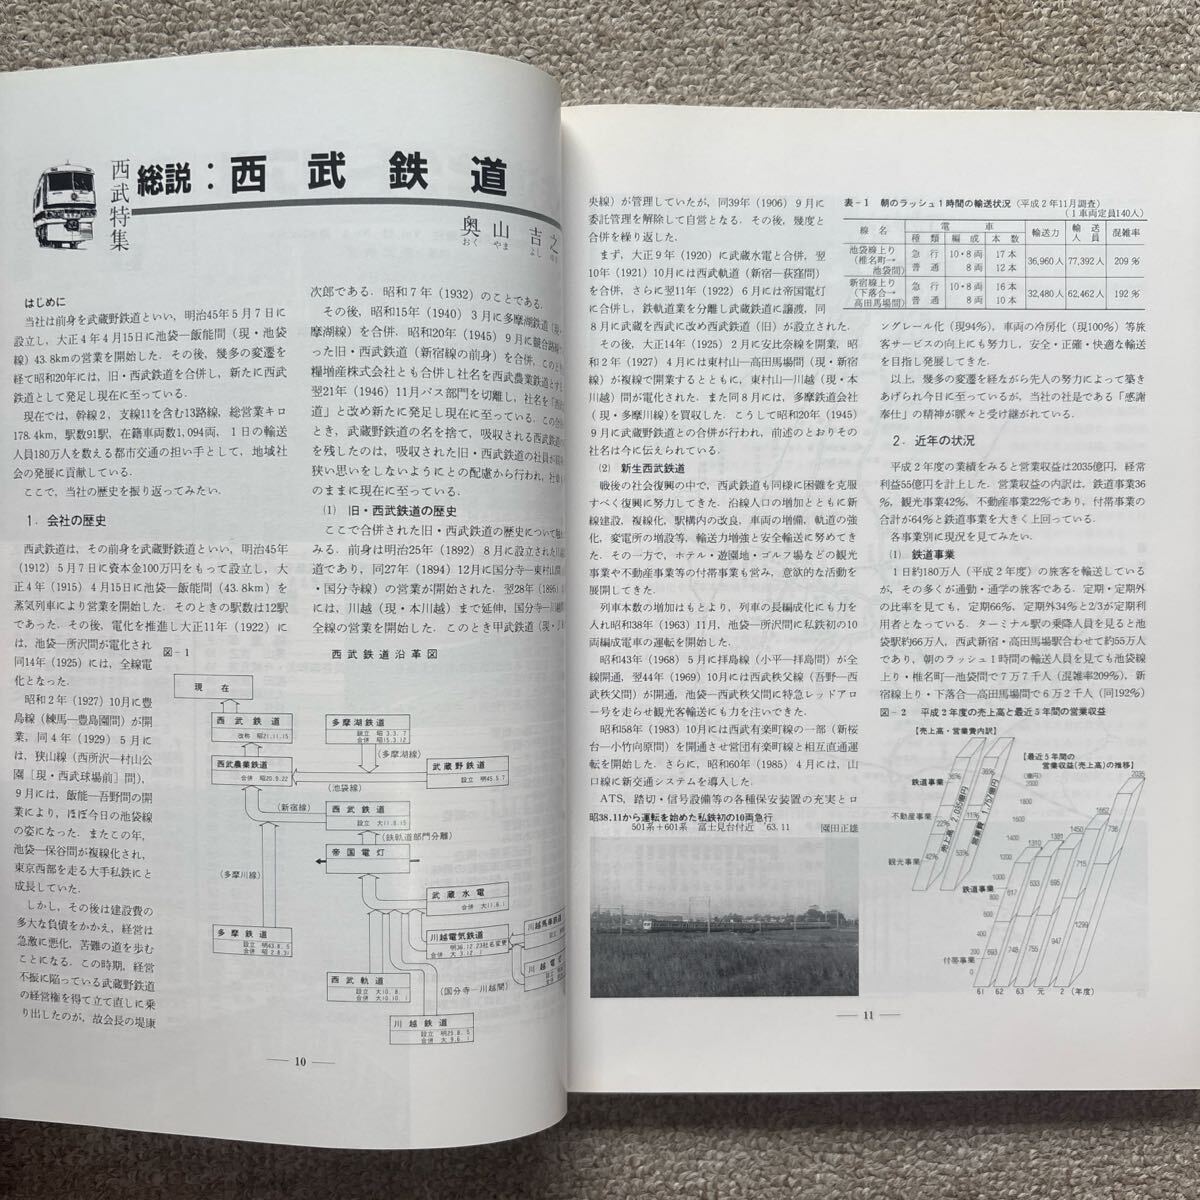 西武特集
総説：西武鉄道
奥山吉之
おくやまよしゆき
はじめに
当社は前身を武蔵野鉄道といい，明治45年5月7日に
設立し，大正4年4月15日に池袋―飯能間（現・池袋
線）43.8kmの営業を開始した．その後，幾多の変遷を
経て昭和20年には，旧・西武鉄道を合併し，新たに西武
鉄道として発足し現在に至っている．
現在では，幹線2，支線11を含む13路線，総営業キロ
178.4km，駅数91駅，在籍車両数1,094両，1日の輸送
人員180万人を数える都市交通の担い手として，地域社
会の発展に貢献している．
ここで，当社の歴史を振り返ってみたい．
1．会社の歴史
西武鉄道は，その前身を武蔵野鉄道といい，明治45年
（1912）5月7日に資本金100万円をもって設立し，大
正4年（1915）4月15日に池袋―飯能間（43.8km）を
蒸気列車により営業を開始した．そのときの駅数は12駅
であった．その後，電化を推進し大正11年（1922）に
は，池袋―所沢間が電化され
同14年（1925）には，全線電
化となった．
昭和2年（1927）10月に豊
島線（練馬―豊島園間）が開
業，同4年（1929）5月に
は，狭山線（西所沢―村山公
園［現・西武球場前］間），
9月には，飯能―吾野間の開
業により，ほぼ今日の池袋線
の姿になった．またこの年，
池袋―保谷間が複線化され，
東京西部を走る大手私鉄にと
成長していた．
しかし，その後は建設費の
多大な負債をかかえ，経営は
急激に悪化，苦難の道を歩む
ことになる．この時期，経営
不振に陥っている武蔵野鉄道
の経営権を得て立て直しに乗
り出したのが，故会長の堤康
次郎である．昭和7年（1932）のことである．
その後，昭和15年（1940）3月に多摩湖鉄道（現・
摩湖線）を合併．昭和20年（1945）9月に競合路線
った旧・西武鉄道（新宿線の前身）を合併，このとき
糧増産株式会社とも合併し社名を西武農業鉄道とす
翌21年（1946）11月バス部門を切離し，社名を「西武
道」と改め新たに発足し現在に至っている．この合
とき，武蔵野鉄道の名を捨て，吸収される西武鉄道の
を残したのは，吸収された旧・西武鉄道の社員が肩
狭い思いをしないようにとの配慮から行われ，社
のままに現在に至っている．
(1) 旧・西武鉄道の歴史
ここで合併された旧・西武鉄道の歴史について触
みる．前身は明治25年（1892）8月に設立された川
道であり，同27年（1894）12月に国分寺―東村山間
・国分寺線）の営業が開始された．翌28年（1895）
には，川越（現・本川越）まで延伸，国分寺―川越
全線の営業を開始した．このとき甲武鉄道（現・
図－1 西武鉄道沿革図
現在
西武鉄道
改称 昭21.11.15
多摩湖鉄道
設立 昭3.3.7
合併 昭15.3.12
（多摩湖線）
西武農業鉄道
合併 昭20.9.22
武蔵野鉄道
設立 明45.5.7
（池袋線）
（新宿線）
西武鉄道
設立 大11.8.15
（鉄軌道部門分離）
帝国電灯
（多摩川線）
武蔵水電
合併 大11.6.1
川越電気鉄道
明36.12.23社名変更
合併 大3.12.1
川越馬車鉄道
川越電灯
多摩鉄道
設立 明43.8.5
合併 昭2.8.31
西武軌道
設立 大10.8.
合併 大10.10.1
（国分寺―川越間）
川越鉄道
設立 明25.8.5
合併 大9.6.1
― 10 ―
央線）が管理していたが，同39年（1906）9月に
委託管理を解除して自営となる．その後，幾度と
合併を繰り返した．
まず，大正9年（1920）に武蔵水電と合併，翌
10年（1921）10月には西武軌道（新宿―荻窪間）
を合併，さらに翌11年（1922）6月に帝国電灯
に合併し，鉄軌道業を分離し武蔵鉄道に譲渡，同
8月に武蔵を西武に改め西武鉄道（旧）が設立された．
その後，大正14年（1925）2月に安比奈線を開業，昭
和2年（1927）4月には東村山―高田馬場間（現・新宿
線）が複線で開業するとともに，東村山―川越（現・本
川越）間が電化された．また同8月には，多摩鉄道会社
（現・多摩川線）を買収した．こうして昭和20年（1945）
9月に武蔵野鉄道との合併が行われ，前述のとおりその
社名は今に伝えられている．
(2) 新生西武鉄道
戦後の社会復興の中で，西武鉄道も同様に困難を克服
すべく復興に努力してきた．沿線人口の増加とともに新
線建設，複線化，駅構内の改良，車両の増備，軌道の強
化，変電所の増設等，輸送力増強と安全輸送に努めてき
た．その一方で，ホテル・遊園地・ゴルフ場などの観光
事業や不動産事業等の付帯事業も営み，意欲的な活動を
展開してきた．
列車本数の増加はもとより，列車の長編成化にも力を
入れ昭和38年（1963）11月，池袋―所沢間に私鉄初の10
両編成電車の運転を開始した．
昭和43年（1968）5月に拝島線（小平―拝島間）が全
線開通，翌44年（1969）10月には西武秩父線（吾野―西
武秩父間）が開通，池袋―西武秩父間に特急レッドアロ
ー号を走らせ観光客輸送にも力を注いできた．
昭和58年（1983）10月には西武有楽町線の一部（新桜
台―小竹向原間）を開通させ営団有楽町線と相互直通運
転を開始した．さらに，昭和60年（1985）4月には，山
口線に新交通システムを導入した．
ATS，踏切・信号設備等の各種保安装置の充実とロ
昭38.11から運転を始めた私鉄初の10両急行
501系＋601系 富士見台付近 '63.11 園田正雄
表－1 朝のラッシュ1時間の輸送状況（平成2年11月調査）
（1車両定員140人）
線名 電車 輸送力 輸送人員 混雑率
種類 編成 本数
池袋線上り（椎名町→池袋間） 急行 10・8両 17本 36,960人 77,392人 209%
普通 8両 12本
新宿線上り（下落合→高田馬場間） 急行 10・8両 16本 32,480人 62,462人 192%
普通 8両 10本
ングレール化（現94%），車両の冷房化（現100%）等旅
客サービスの向上にも努力し，安全・正確・快適な輸送
を目指し発展してきた．
以上，幾多の変遷を経ながら先人の努力によって築き
あげられ今日に至っているが，当社の社是である「感謝
奉仕」の精神が脈々と受け継がれている．
2．近年の状況
平成2年度の業績をみると営業収益は2035億円，経常
利益55億円を計上した．営業収益の内訳は，鉄道事業36
%，観光事業42%，不動産事業22%であり，付帯事業の
合計が64%と鉄道事業を大きく上回っている．
各事業別に現況を見てみたい．
(1) 鉄道事業
1日約180万人（平成2年度）の旅客を輸送している
が，その多くが通勤・通学の旅客である．定期・定期外
の比率を見ても，定期66%，定期外34%と2/3が定期利
用者となっている．ターミナル駅の乗降人員を見ると池
袋駅約66万人，西武新宿・高田馬場駅合わせて約55万人
であり，朝のラッシュ1時間の輸送人員を見ても池袋線
上り・椎名町―池袋間で7万7千人（混雑率209%），新
宿線上り・下落合―高田馬場間で6万2千人（同192%）
図－2 平成2年度の売上高と最近5年間の営業収益
【売上高・営業費内訳】
鉄道事業
不動産事業
観光事業
36%
22%
42%
売上高 2,035億円
36%
11%
53%
営業費 1,757億円
【最近5年間の営業収益(売上高)の推移】
（億円）
2000
1800
1600
1400
1200
1000
800
600
400
200
0
鉄道事業
付帯事業
1310
1381
1490
1662
2035
617
633
695
715
736
693
748
795
947
1299
61 62 63 元 2（年度）
― 11 ―